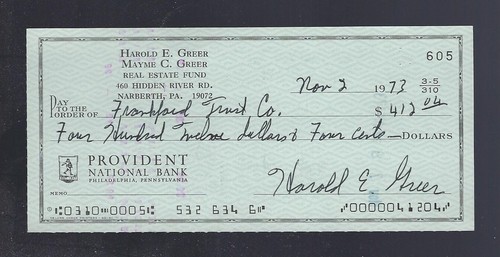 HAROLD E. GREER
MAYME C. GREER
REAL ESTATE FUND
460 HIDDEN RIVER RD.
NARBERTH, PA. 19072
605
Nov 2 1973 3-5/310
PAY TO THE ORDER OF Frankford Trust Co. $ 412 04
Four Hundred Twelve dollars & Four cents — DOLLARS
PROVIDENT
NATIONAL BANK
PHILADELPHIA, PENNSYLVANIA
Harold E Greer
MEMO
⑆0310⑈0005⑆ 532 634 6⑈ ⑈0000041204⑈